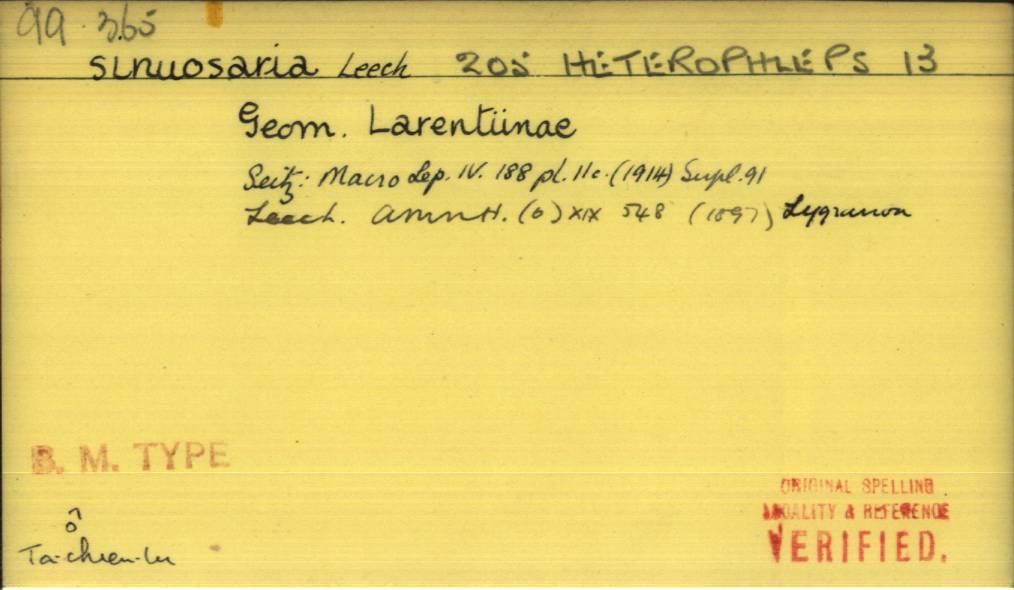 99.365
sinuosaria Leech 205 HETEROPHLEPS 13
Geom. Larentiinae
Seitz: Macro Lep. IV. 188 pl. 11c. (1914) Supl. 91
Leech. AMNH. (6) XIX 548 (1897)
B. M. TYPE
ORIGINAL SPELLING
LOCALITY & REFERENCE
VERIFIED.
♂
Ta-chien-lu